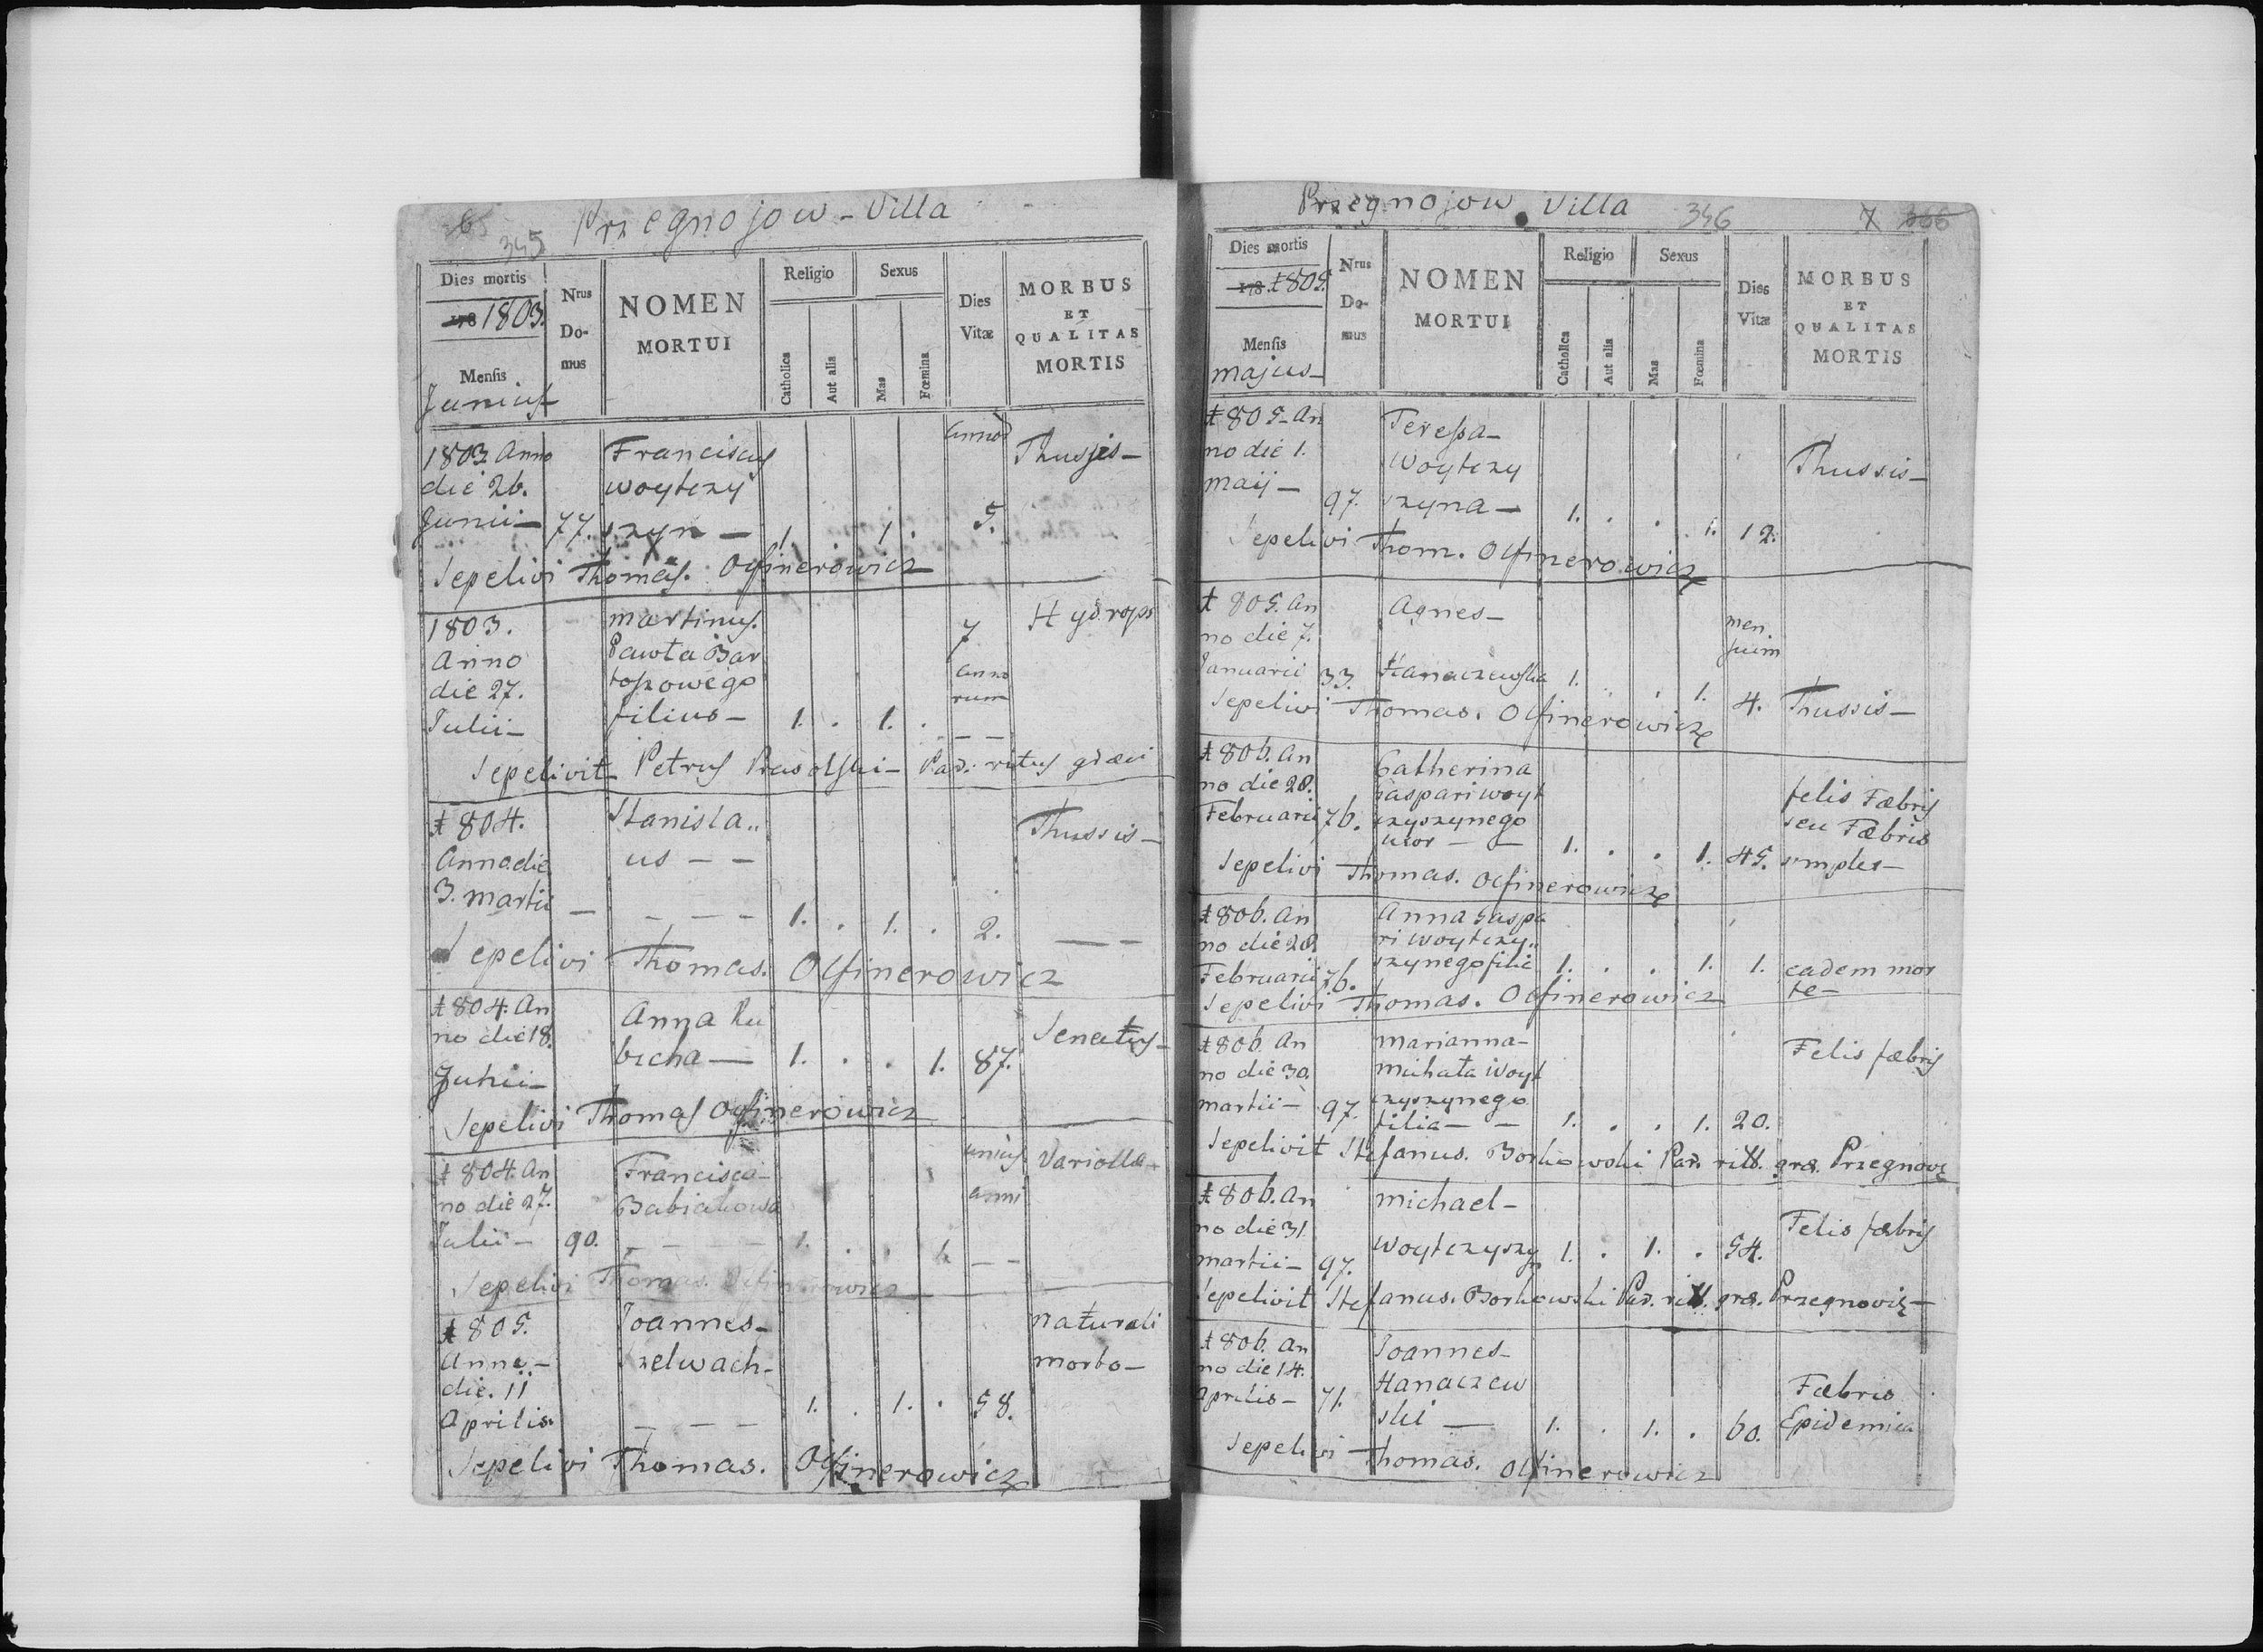 65
345
Przegnojow - Villa
Dies mortis
178 1803.
Mensis
Junius
Nrus Do-mus
NOMEN
MORTUI
Religio
Catholica
Aut alia
Sexus
Mas
Fœmina
Dies Vitæ
MORBUS
ET
QUALITAS
MORTIS
1803 Anno
die 26.
Junii - 77.
Franciscus
Woytczy
szyn -
1. . 1. .
Anno
5.
Thussis -
Sepelivi Thomas. Olfinerowicz
1803.
Anno
die 27.
Julii -
Martinus.
Pawła Bar
toszowego
filius -
1. . 1. .
7
anno
rum
- -
Hydrops
Sepelivit Petrus Par. ritus græci
1804.
Anno die
3. Martii -
Stanisla„
us - -
- - -
1. . 1. . 2.
Thussis -
- -
Sepelivi Thomas. Olfinerowicz
1804. An
no die 18.
Anna Ru
bicha -
1. . . 1. 87.
Senectus -
Sepelivi Thomas Olfinerowicz
1804. An
no die 27.
Julii - 90.
Francisca -
Babiakowa
- - - -
1. . . 1.
unius
anni
- -
Variolla -
Sepelivi Thomas. Olfinerowicz
1805.
Anno -
die. 11
Aprilis.
Joannes -
Szelwach -
- - -
1. . 1. . 58.
naturali
morbo -
Sepelivi Thomas. Olfinerowicz
Przegnojow Villa
346
7 366
Dies mortis
178 1805.
Mensis
majus -
Nrus Do-mus
NOMEN
MORTUI
Religio
Catholica
Aut alia
Sexus
Mas
Fœmina
Dies Vitæ
MORBUS
ET
QUALITAS
MORTIS
1805 - An
no die 1.
maij - 97.
Teressa -
Woytczy
szyna -
1. . . 1. 12.
Thussis -
Sepelivi Thom. Olfinerowicz
1805. An
no die 7.
Januarii 33.
Agnes -
Hanaczewska
1. . . 1.
men
sium
4.
Thussis -
Sepelivi Thomas. Olfinerowicz
1806. An
no die 28.
Februarii 76.
Catherina
Gaspari Woyt
czyszynego
uxor - -
1. . . 1. 45.
felis Fæbris
seu Fæbris
simplex -
Sepelivi Thomas. Olfinerowicz
1806. An
no die 28.
Februarii 76.
Anna Gaspa
ri Woytczy„
szynego filia
1. . . 1. 1.
eadem mor
te -
Sepelivi Thomas. Olfinerowicz
1806. An
no die 30.
martii - 97.
Marianna -
Michała Woyt
czyszynego
filia - -
1. . . 1. 20.
Felis fæbris
Sepelivit Stefanus. Borkowski Par. ritt. græ.
1806. An
no die 31.
martii - 97.
Michael -
Woytczyszyn
1. . 1. . 54.
Felis fæbris
Sepelivit Stefanus. Borkowski Par. ritt. græ.
1806. An
no die 14.
Aprilis - 71.
Joannes -
Hanaczew
ski -
1. . 1. . 60.
Fæbris
Epidemica
Sepelivi Thomas. Olfinerowicz